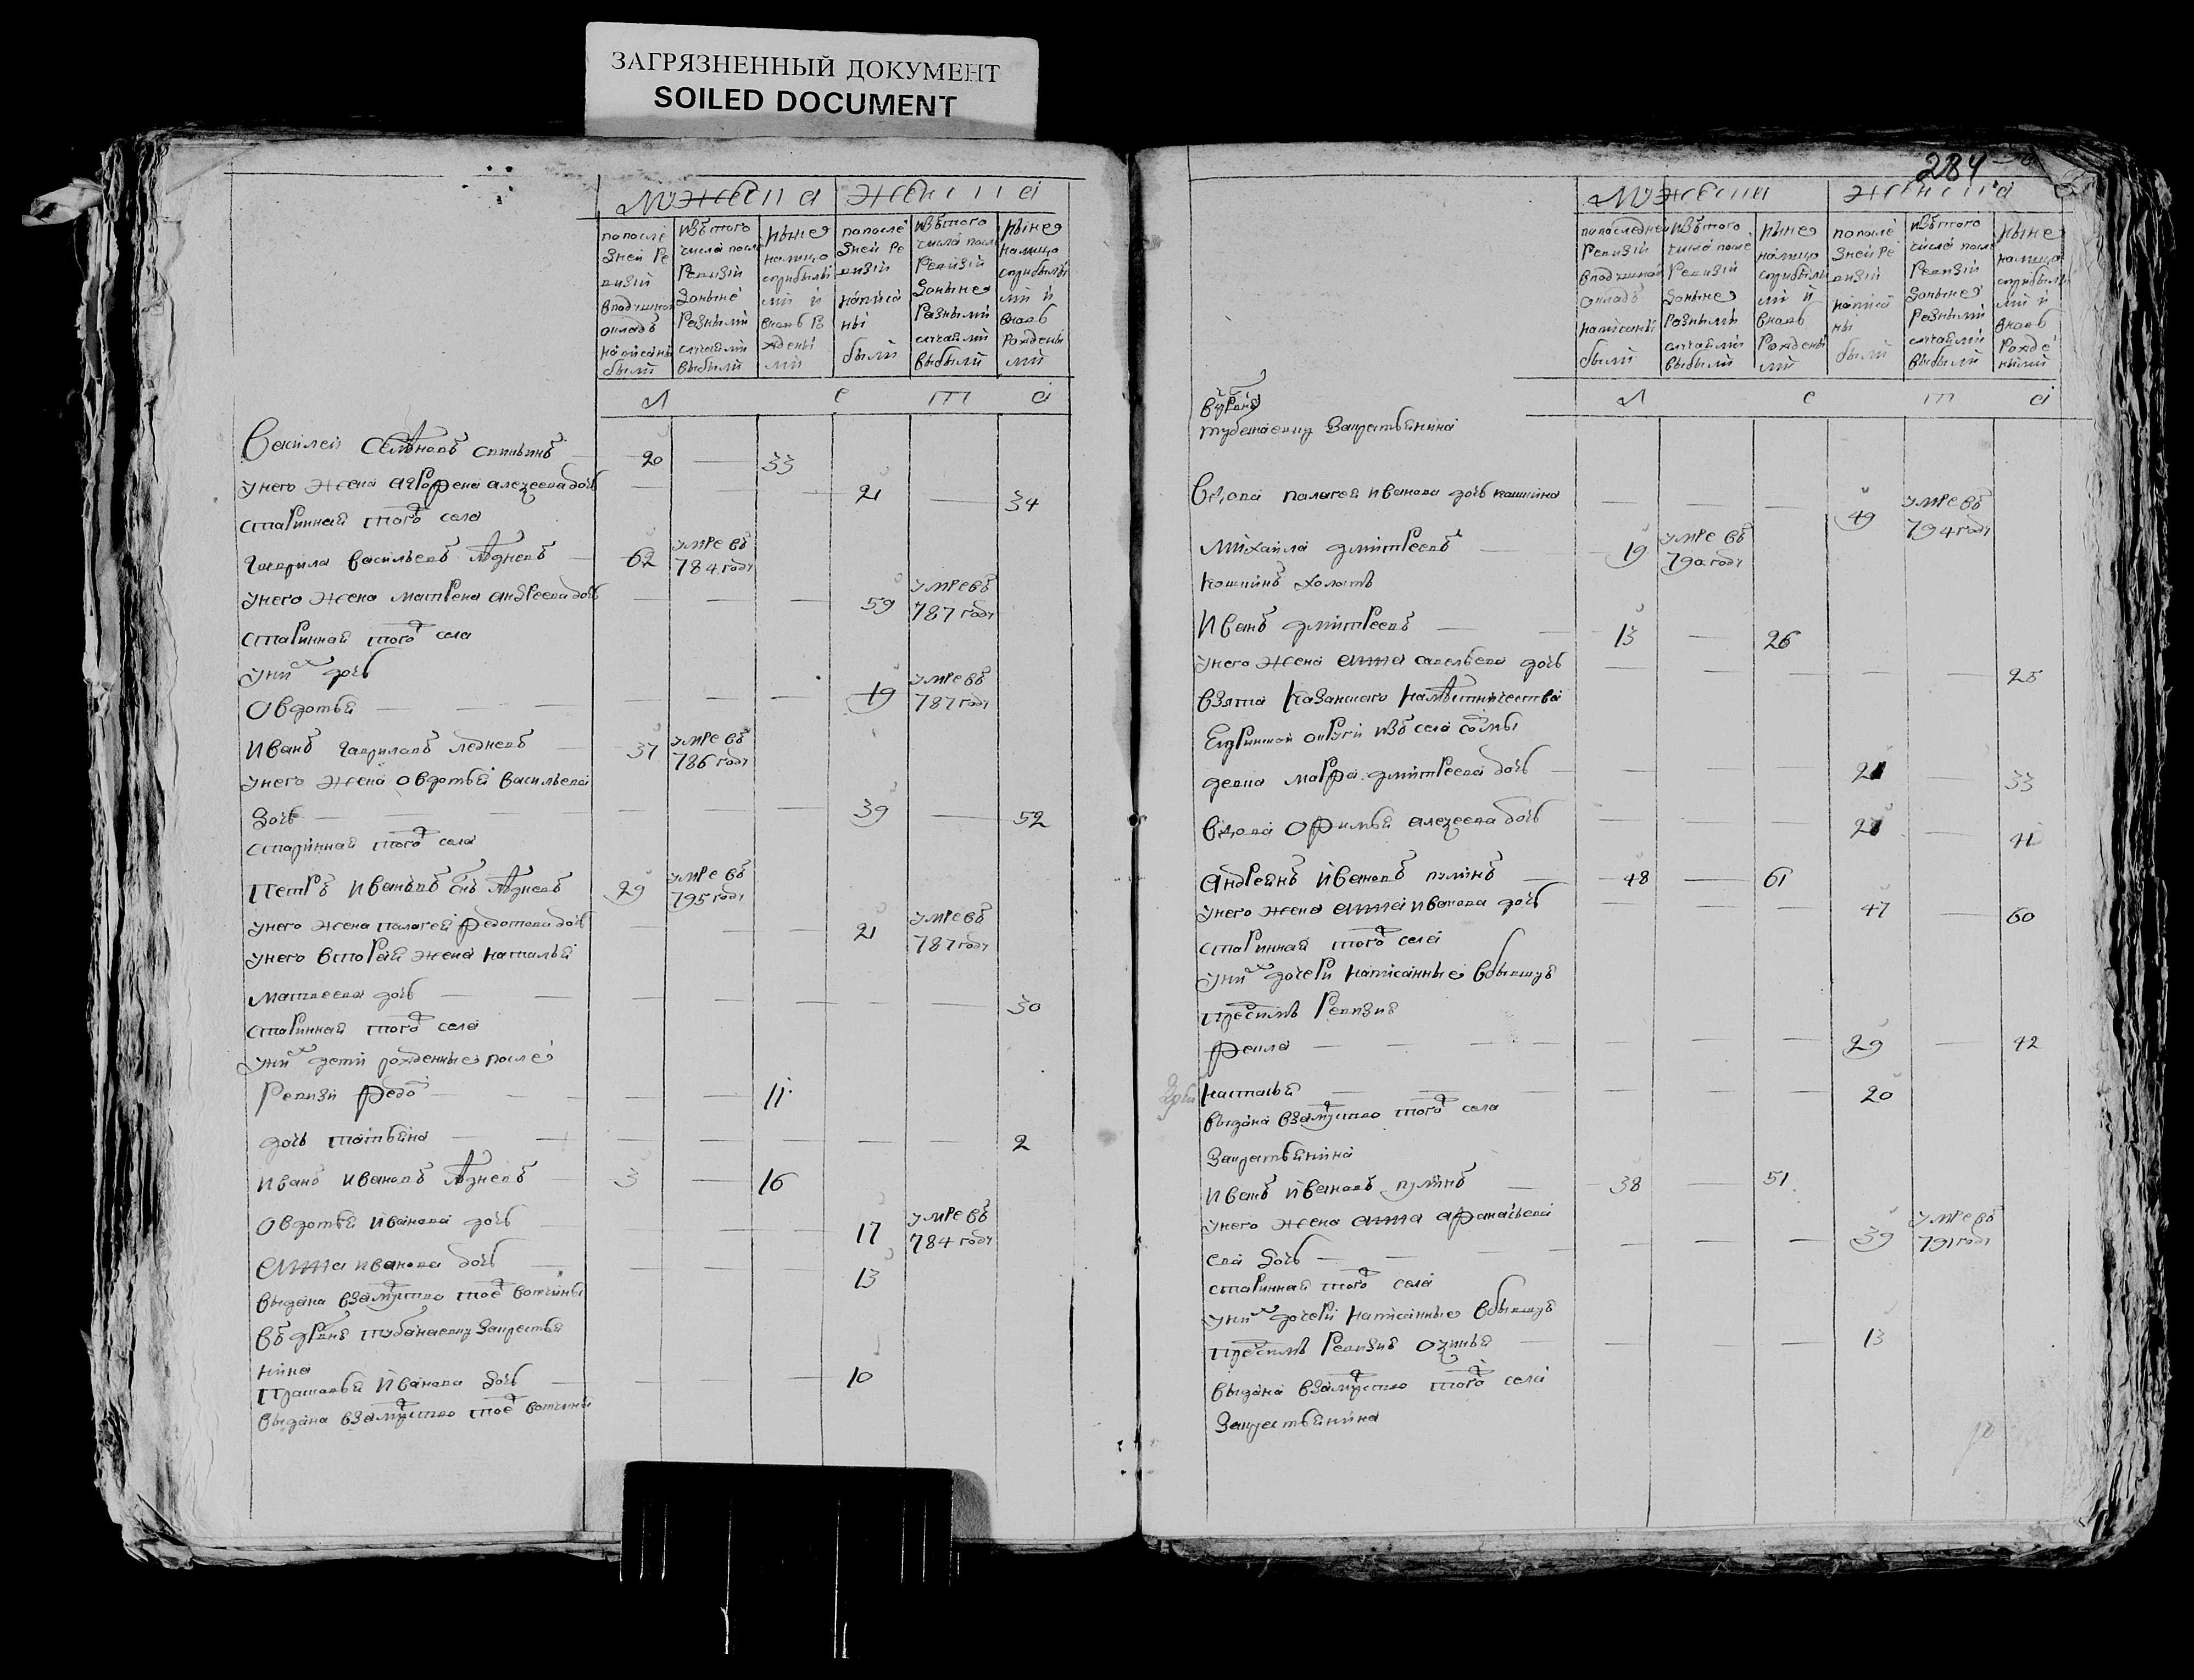 ЗАГРЯЗНЕННЫЙ ДОКУМЕНТ
SOILED DOCUMENT
Мужеска Женска
попослѣдней Ревизий вподушной окладъ написаны были
изътого числа после Ревизий доныне разными случаями выбыли
ныне налицо сприбылыми и вновь рождеными
попоследней Ревизий написаны были
изътого числа после Ревизий доныне разными случаями выбыли
ныне налицо сприбылыми и вновь рождеными
Л е т а
Василей Семѣновъ 20 — 33
унего жена аграфена алексеева дочь — — — 21 — 34
старинная того села
Гаврила васильевъ лѣдневъ — 62 умре въ 784 году
унего жена матрена андреева дочь — — — 59 умре въ 787 году
старинная того села
унихъ дочь
Овдотья — — — 19 умре въ 787 году
Иванъ гавриловъ ледневъ — 37 умре въ 786 году
унего жена овдотья васильева
дочь — — — 39 — 52
старинная того села
Петръ Ивановъ снъ лѣдневъ 29 умре въ 795 году
унего жена палагея федотова дочь — — — 21 умре въ 787 году
унего вторая жена наталья
матвеева дочь — — — — — 30
старинная того села
унихъ дети рожденные после
Ревизи федо — — — 11
дочь татьяна — — — — — 2
Иванъ Ивановъ лѣдневъ 3 — 16
Овдотья Иванова дочь — — — 17 умре въ 784 году
анна иванова дочь — — — 13
выдана взамужство тоѣ вотчины
въ дрвню тубанаевку закрестья
нина
Прасковья Иванова дочь — — — 10
выдана взамужство тоѣ вотчины
284
Мужеска Женска
попоследней Ревизий вподушной окладъ написаны были
изътого числа после Ревизий доныне разными случаями выбыли
ныне налицо сприбылыми и вновь рождеными
попоследней Ревизий написаны были
изътого числа после Ревизий доныне разными случаями выбыли
ныне налицо сприбылыми и вновь рождеными
Л е т а
вдрвню
тубанаевку закрестьянина
вдова палагея иванова дочь кошкина — — — 49 умре въ 794 году
Михайла дмитреевъ — 19 умре въ 790 году
кошкинъ холостъ
Иванъ дмитреевъ — 13 — 26
унего жена анна савельева дочь — — — — — 25
взята казанскаго намѣстничества
округи изъ села
девка марфа дмитреева дочь — — — 21 — 33
вдова офимья алексеева дочь — — — 28 — 41
андреянъ Ивановъ — 48 — 61
унего жена анна иванова дочь — — — 47 — 60
старинная того села
унихъ дочери написанные вбывшую
предсимъ Ревизию
фекла — — — 29 — 42
настасья — — — 20
выдана взамужство того села
закрестьянина
Иванъ Ивановъ — 38 — 51
унего жена анна афанасьева
ева дочь — — — 39 умре въ 791 году
старинная того села
унихъ дочери написанные вбывшую
предсимъ Ревизию — — — 13
выдана взамужство того села
закрестьянина